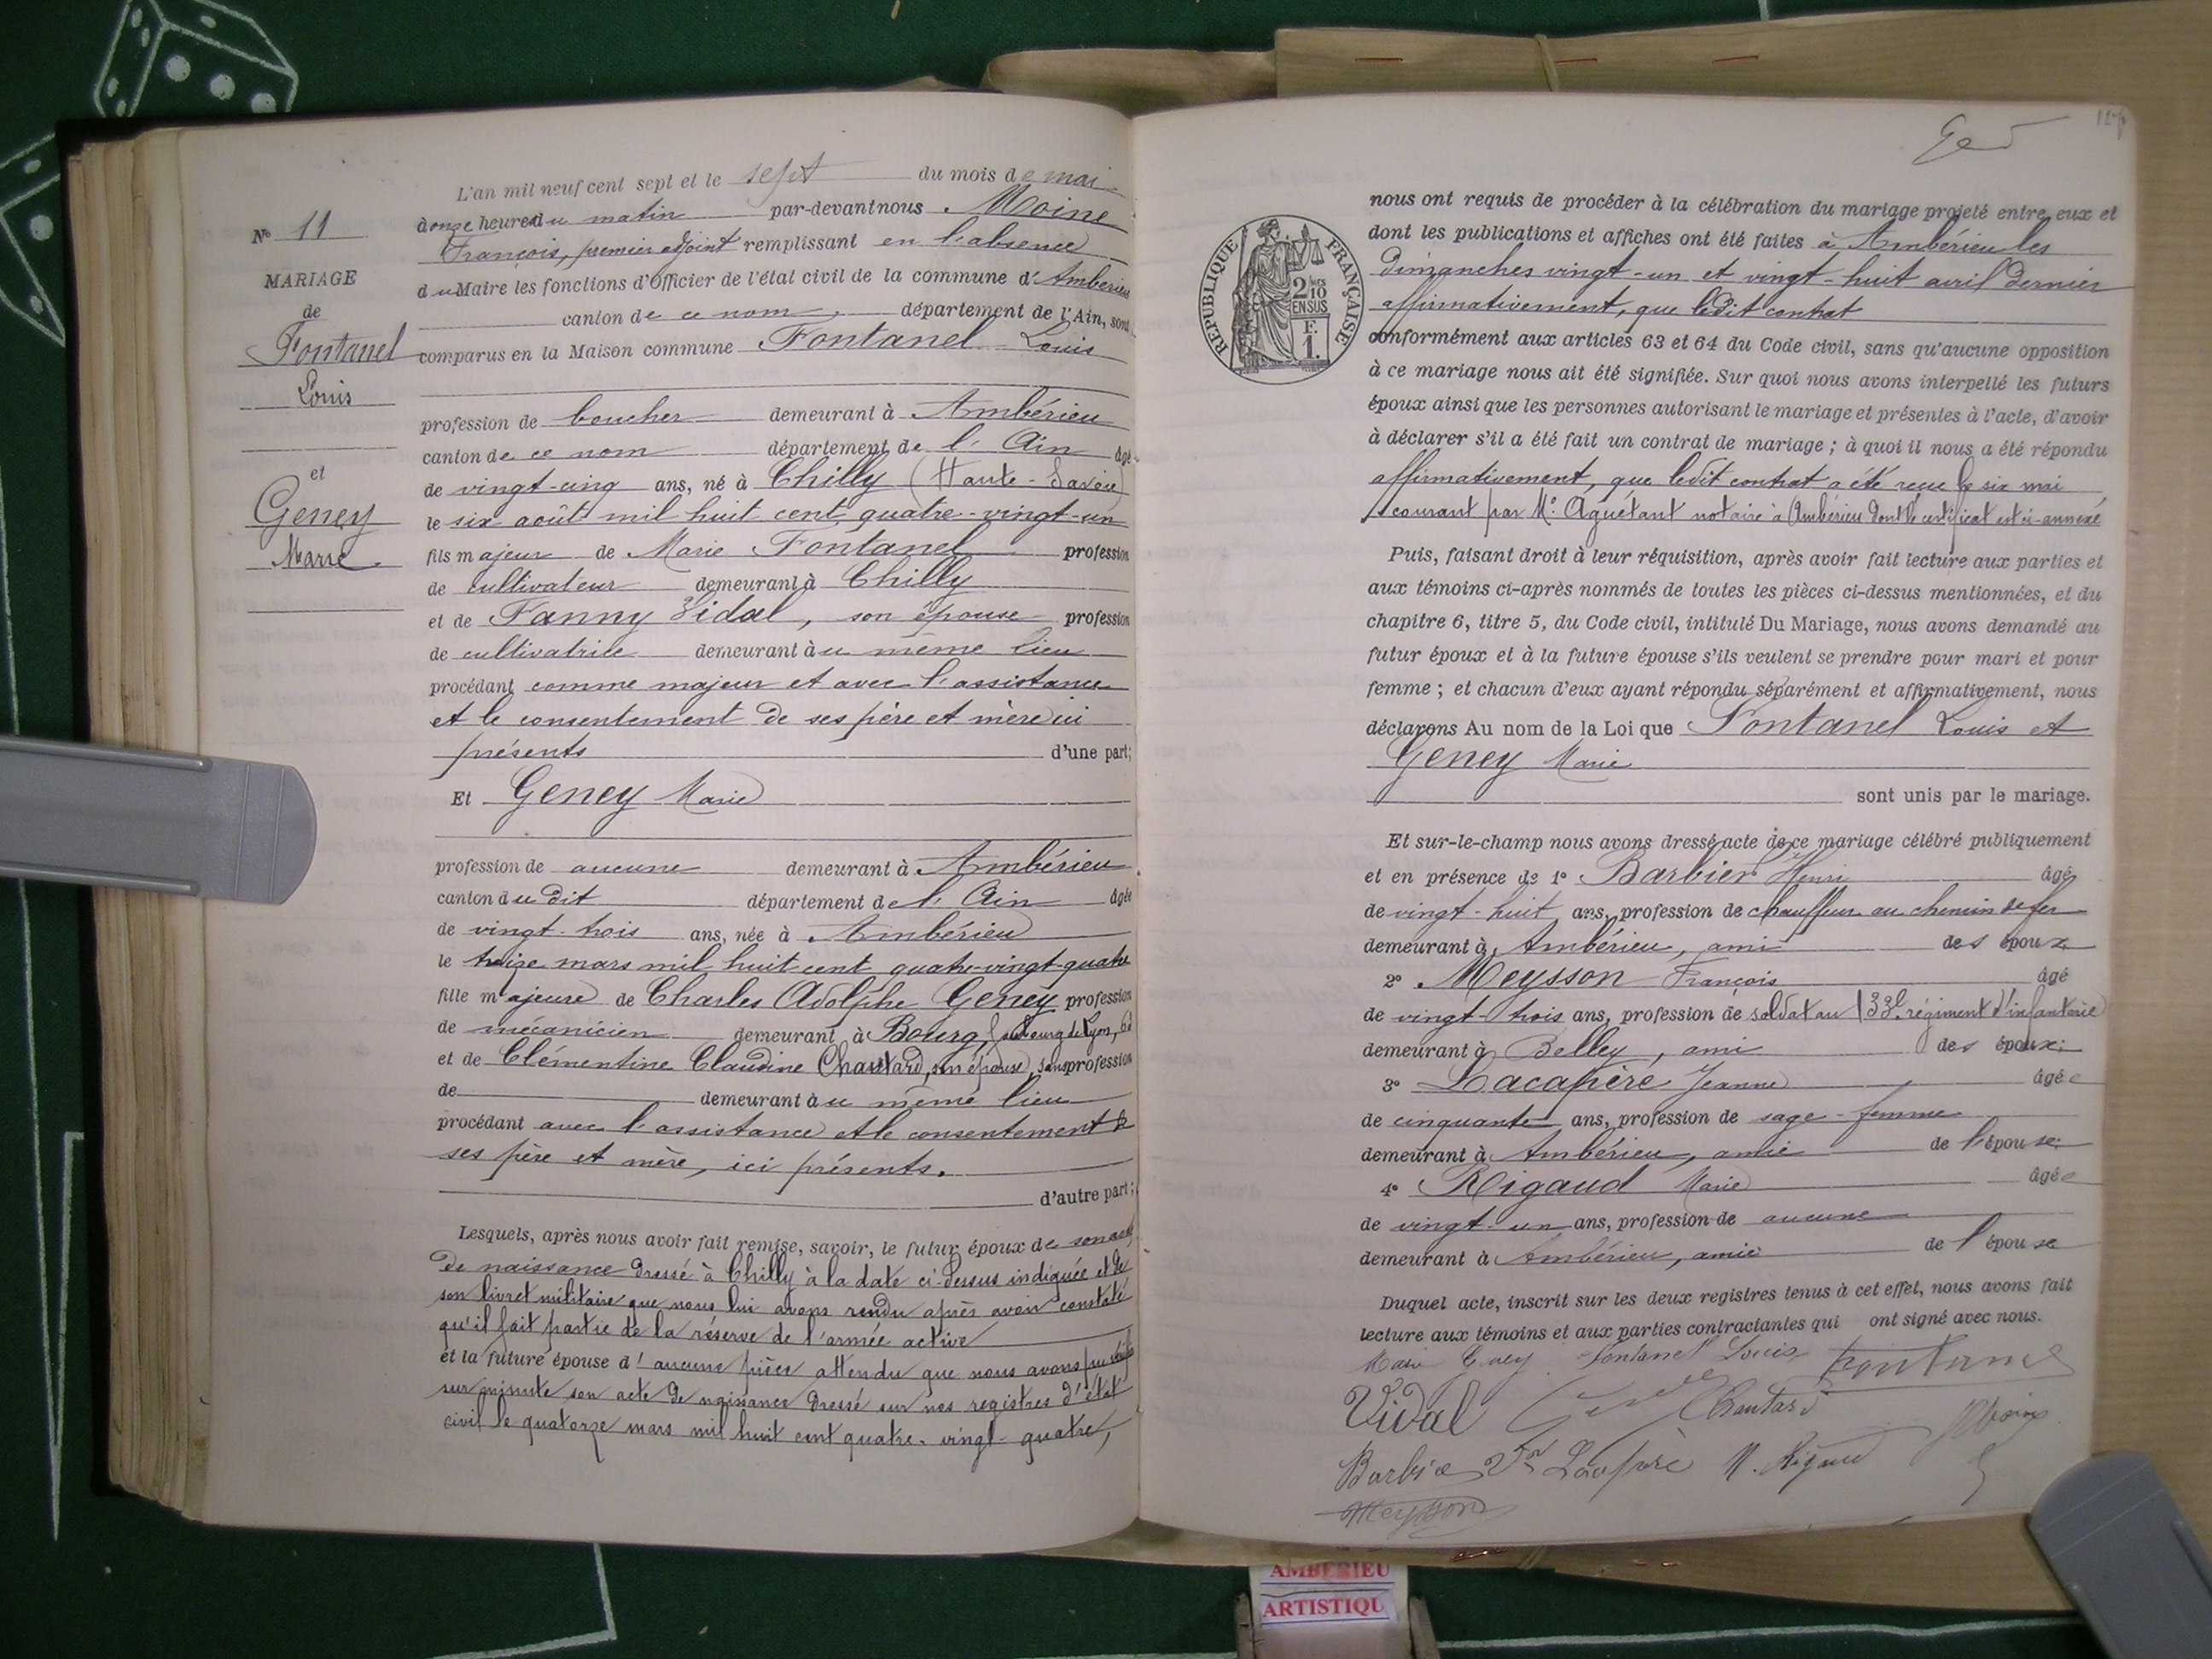 L'an mil neuf cent sept et le sept du mois de mai
N° 11
à onze heures du matin par-devant nous Moine
François, premier adjoint remplissant en l'absence
MARIAGE
du Maire les fonctions d'Officier de l'état civil de la commune d'Ambérieu
de
canton de ce nom, département de l'Ain, sont
Fontanel
comparus en la Maison commune Fontanel Louis
Louis
profession de boucher demeurant à Ambérieu
canton de ce nom département de l'Ain âgé
et
de vingt-cinq ans, né à Chilly (Haute-Savoie)
Geney
le six août mil huit cent quatre-vingt-un
Marie
fils majeur de Marie Fontanel profession
de cultivateur demeurant à Chilly
et de Fanny Vidal, son épouse profession
de cultivatrice demeurant au même lieu
procédant comme majeur et avec l'assistance
et le consentement de ses père et mère ici
présents d'une part;
Et Geney Marie
profession de aucune demeurant à Ambérieu
canton du dit département de l'Ain âgée
de vingt-trois ans, née à Ambérieu
le treize mars mil huit cent quatre-vingt-quatre
fille majeure de Charles Adolphe Geney profession
de mécanicien demeurant à Bourg, faubourg de Lyon,
et de Clémentine Claudine Chautard, son épouse, sans profession
de demeurant au même lieu
procédant avec l'assistance et le consentement de
ses père et mère, ici présents.
d'autre part;
Lesquels, après nous avoir fait remise, savoir, le futur époux de son acte
de naissance dressé à Chilly à la date ci-dessus indiquée et de
son livret militaire que nous lui avons rendu après avoir constaté
qu'il fait partie de la réserve de l'armée active
et la future épouse d'aucune pièce attendu que nous avons pu
sur minute son acte de naissance dressé sur nos registres d'état
civil le quatorze mars mil huit cent quatre-vingt-quatre,
nous ont requis de procéder à la célébration du mariage projeté entre eux et
dont les publications et affiches ont été faites à Ambérieu les
dimanches vingt-un et vingt-huit avril dernier
affirmativement, que ledit contrat
RÉPUBLIQUE FRANÇAISE
2 10
EN SUS
F.
1.
conformément aux articles 63 et 64 du Code civil, sans qu'aucune opposition
à ce mariage nous ait été signifiée. Sur quoi nous avons interpellé les futurs
époux ainsi que les personnes autorisant le mariage et présentes à l'acte, d'avoir
à déclarer s'il a été fait un contrat de mariage ; à quoi il nous a été répondu
affirmativement, que ledit contrat a été reçu le six mai
courant par Me Aguétant notaire à Ambérieu dont le certificat est ci-annexé
Puis, faisant droit à leur réquisition, après avoir fait lecture aux parties et
aux témoins ci-après nommés de toutes les pièces ci-dessus mentionnées, et du
chapitre 6, titre 5, du Code civil, intitulé Du Mariage, nous avons demandé au
futur époux et à la future épouse s'ils veulent se prendre pour mari et pour
femme ; et chacun d'eux ayant répondu séparément et affirmativement, nous
déclarons Au nom de la Loi que Fontanel Louis et
Geney Marie
sont unis par le mariage.
Et sur-le-champ nous avons dressé acte de ce mariage célébré publiquement
et en présence de 1° Barbier Henri âgé
de vingt-huit ans, profession de chauffeur au chemin de fer
demeurant à Ambérieu, ami des époux
2° Meysson François âgé
de vingt-trois ans, profession de soldat au 133e régiment d'infanterie
demeurant à Belley, ami des époux;
3° Lacapère Jeanne âgée
de cinquante ans, profession de sage-femme
demeurant à Ambérieu, amie de l'épouse;
4° Rigaud Marie âgée
de vingt-un ans, profession de aucune
demeurant à Ambérieu, amie de l'épouse
Duquel acte, inscrit sur les deux registres tenus à cet effet, nous avons fait
lecture aux témoins et aux parties contractantes qui ont signé avec nous.
Marie Geney Fontanel Louis Fontanel
Vidal Chautard
Barbier Lacapère M. Rigaud
Meysson
AMBERIEU
ARTISTIQU